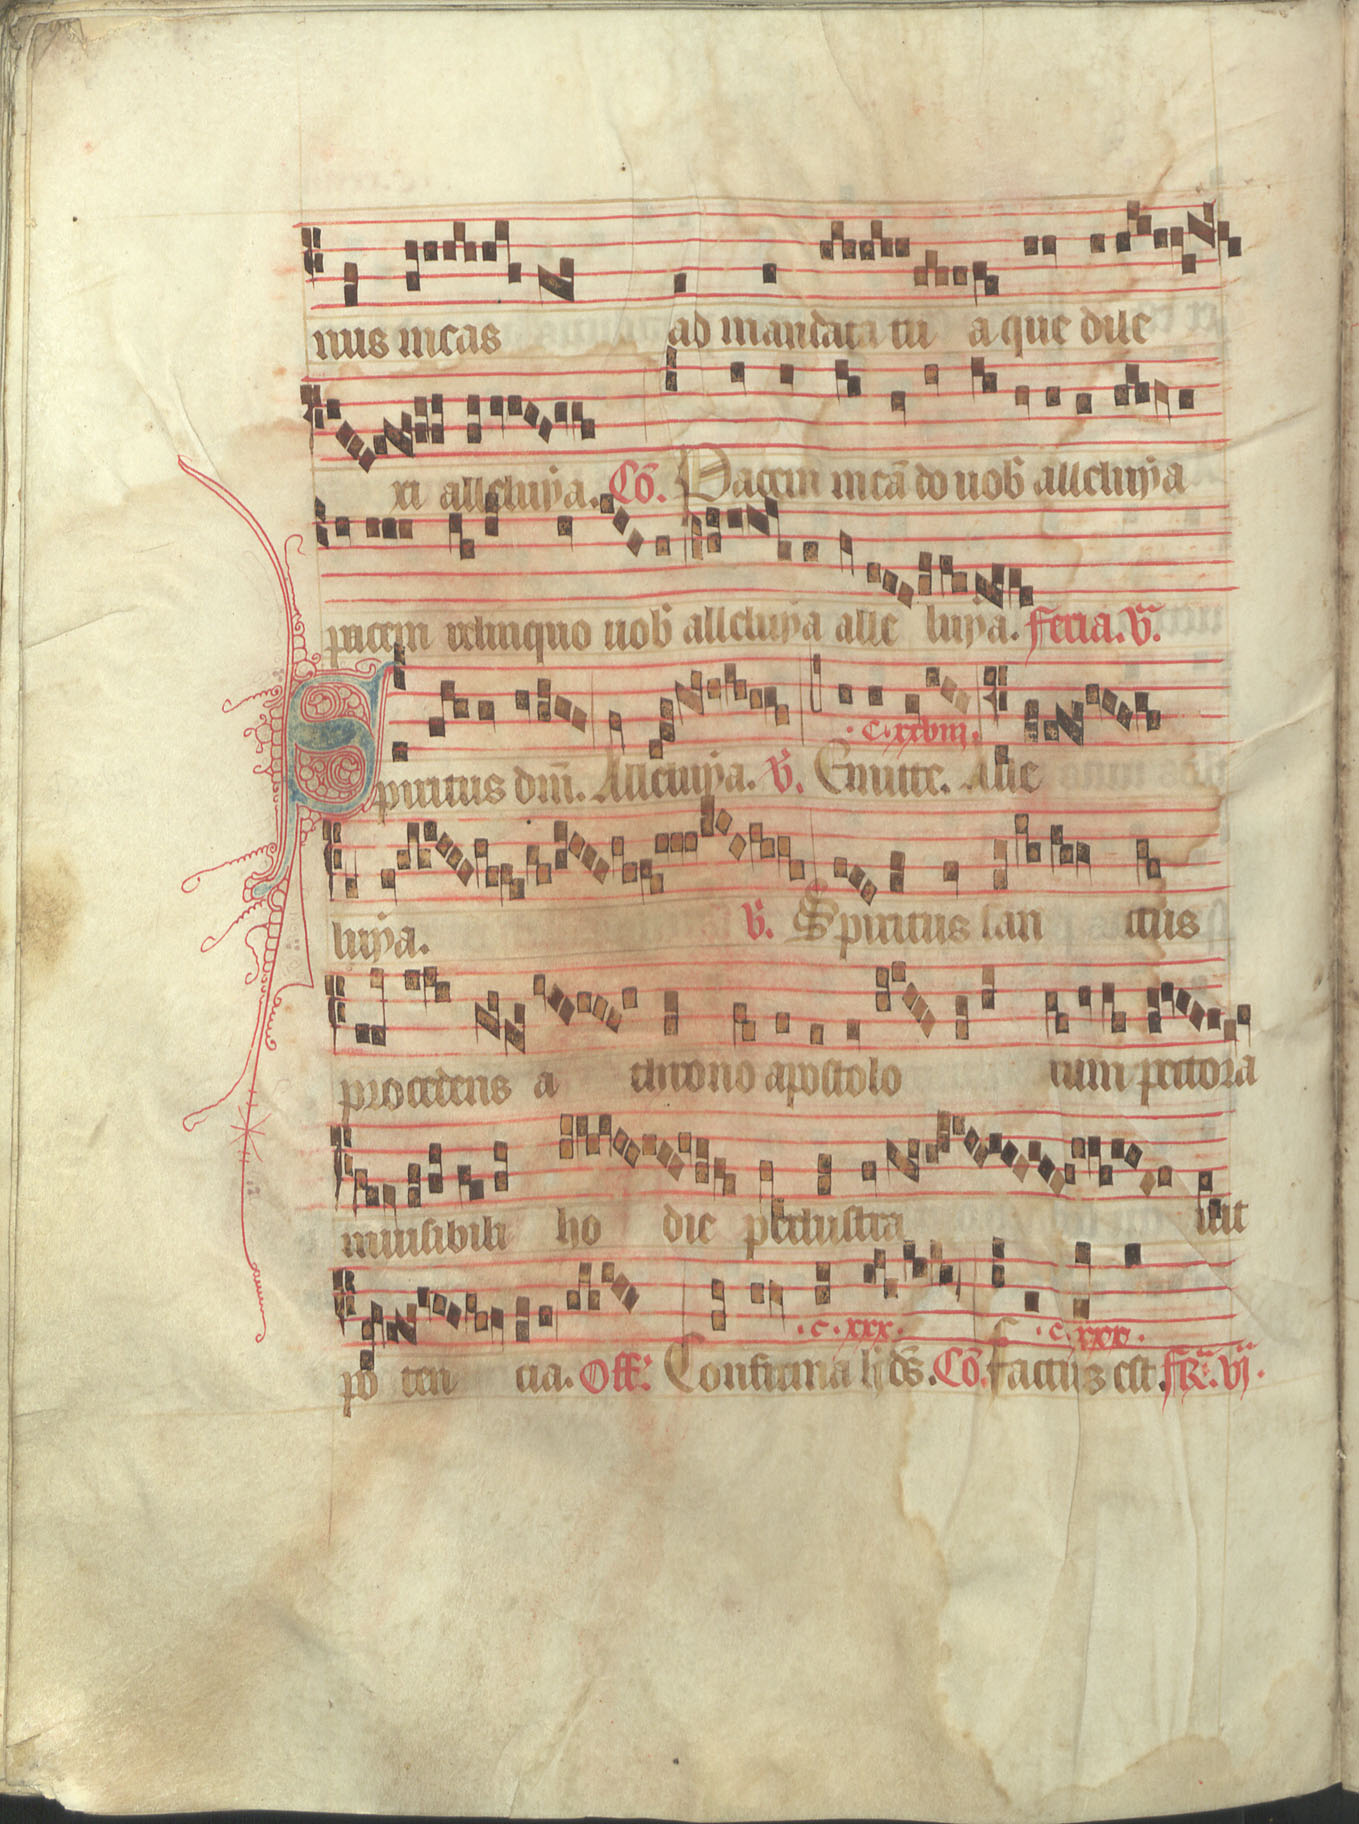 nus meas ad mandata tu a que dile
xi alleluya. Cō. Pacem meā do uob̄ alleluya
pacem relinquo uob̄ alleluya alle luya. feria. v̄.
Spiritus dm̄. Alleluya. v̄. Emitte. Alle
.c.xxviii.
luya. v̄. Spiritus san ctus
procedens a throno apostolo rum pectora
inuisibili ho die perlustra uit
.c.xxx. .c.xxx.
po ten cia. Off. Confirma h ds̄. Cō. factus est. fr̄. vj.